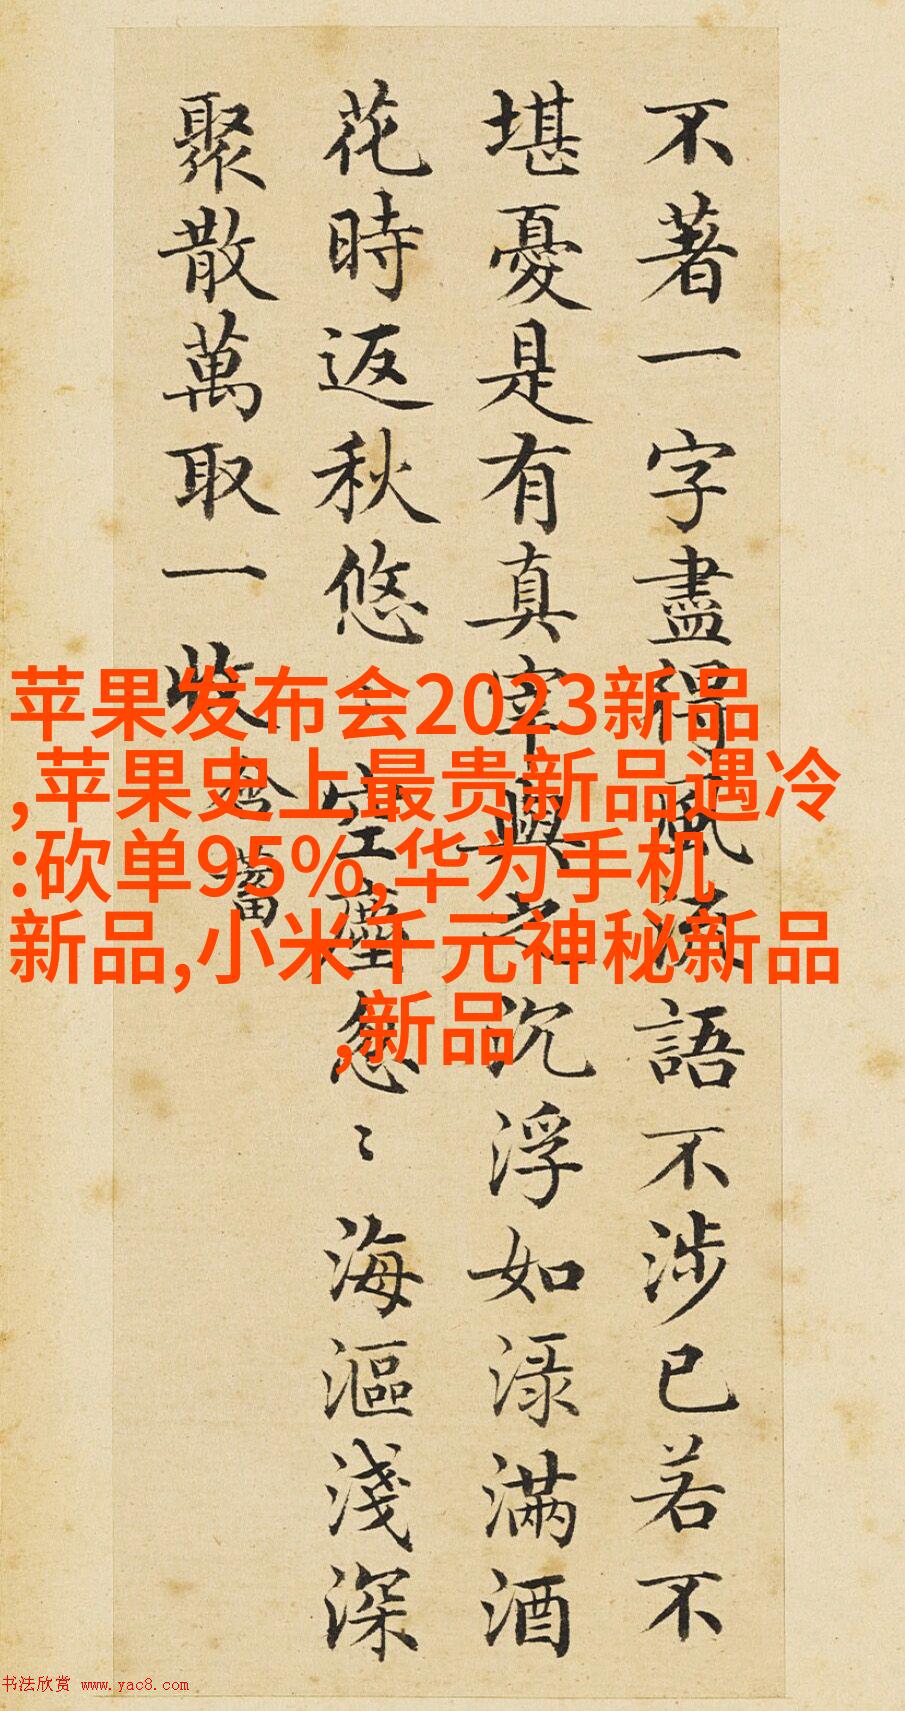 不著一字盡得風流語不涉已若不
堪憂是有真宰與之沉浮如渌滿酒
花時返秋悠〻空塵忽〻海漚淺深
聚散萬取一收
含蓄
苹果发布会2023新品
,苹果史上最贵新品遇冷
:砍单95%,华为手机
新品,小米千元神秘新品
,新品
书法欣赏 www.yac8.com